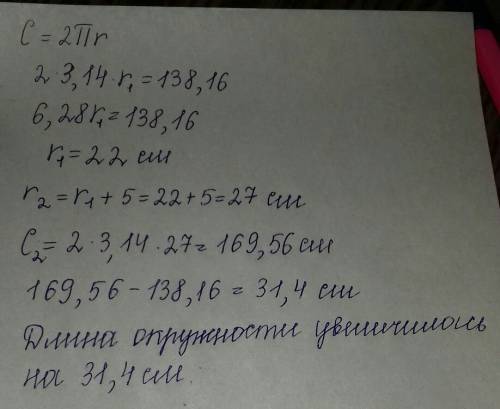 C = 2Пr
2·3,14·r₁=138,16
6,28r₁=138,16
r₁=22 см
r₂=r₁+5=22+5=27 см
C₂=2·3,14·27=169,56 см
169,56-138,16=31,4 см
Длина окружности увеличилась
на 31,4 см.